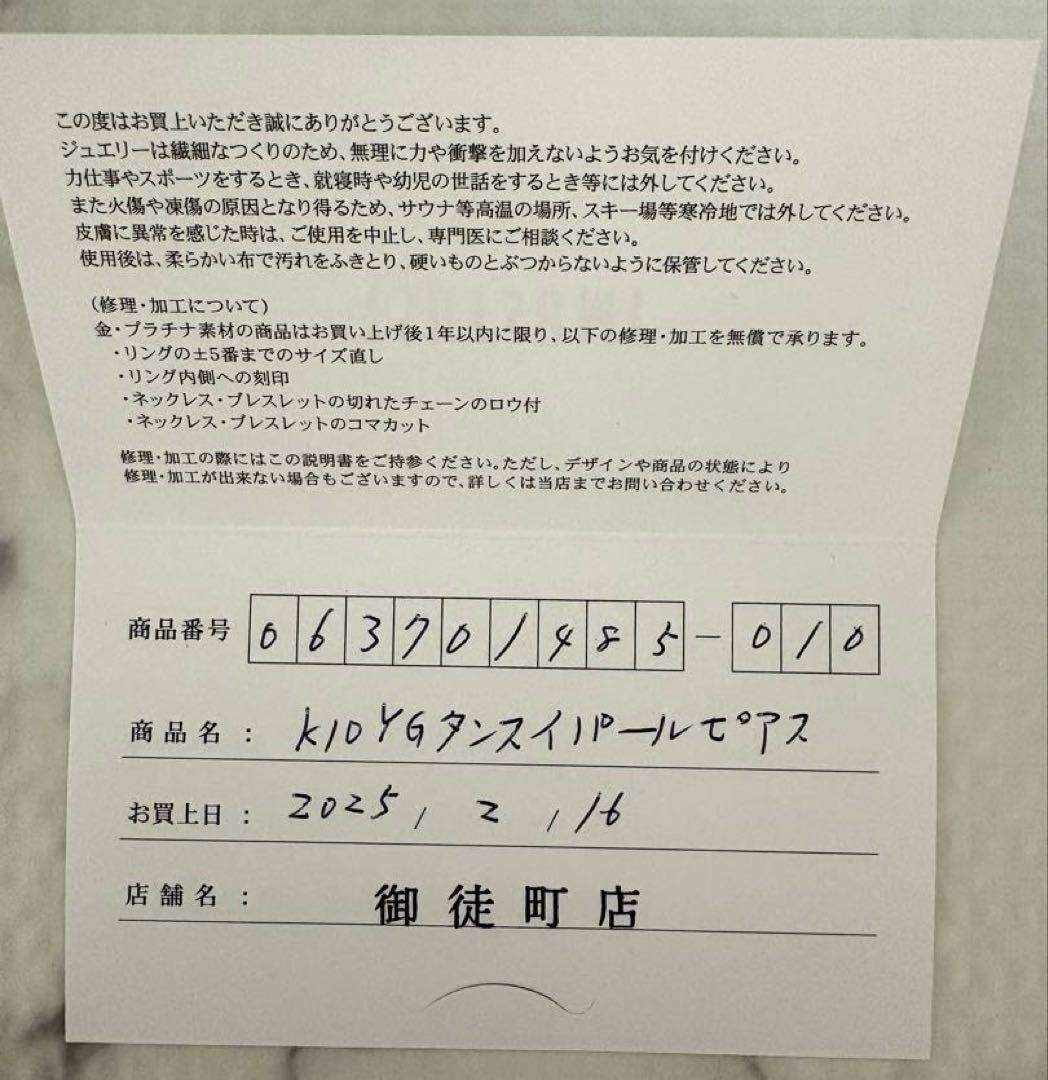 この度はお買上いただき誠にありがとうございます。
ジュエリーは繊細なつくりのため、無理に力や衝撃を加えないようお気を付けください。
力仕事やスポーツをするとき、就寝時や幼児の世話をするとき等には外してください。
また火傷や凍傷の原因となり得るため、サウナ等高温の場所、スキー場等寒冷地では外してください。
皮膚に異常を感じた時は、ご使用を中止し、専門医にご相談ください。
使用後は、柔らかい布で汚れをふきとり、硬いものとぶつからないように保管してください。
（修理・加工について）
金・プラチナ素材の商品はお買い上げ後1年以内に限り、以下の修理・加工を無償で承ります。
・リングの±5番までのサイズ直し
・リング内側への刻印
・ネックレス・ブレスレットの切れたチェーンのロウ付
・ネックレス・ブレスレットのコマカット
修理・加工の際にはこの説明書をご持参ください。ただし、デザインや商品の状態により
修理・加工が出来ない場合もございますので、詳しくは当店までお問い合わせください。
商品番号 063701485-010
商品名： K10YGタンスイパールピアス
お買上日： 2025, 2, 16
店舗名： 御徒町店